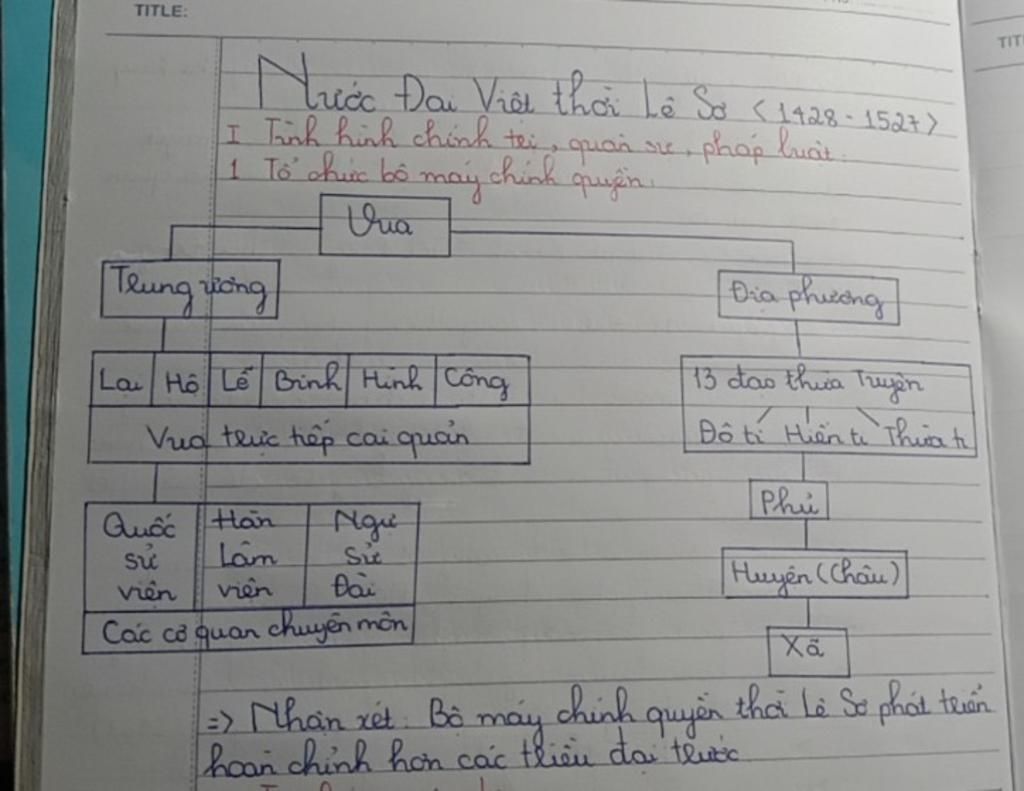 TITLE:
Nước Đại Việt thời Lê Sơ (1428 - 1527)
I Tình hình chính trị, quân sự, pháp luật.
1 Tổ chức bộ máy chính quyền.
Vua
Trung ương
Địa phương
Lại Hộ Lễ Binh Hình Công
Vua trực tiếp cai quản
13 đạo thừa Tuyên
Đô ti Hiến ti Thừa ti
Phủ
Quốc sử viện
Hàn Lâm viện
Ngự sử Đài
Các cơ quan chuyên môn
Huyện (Châu)
Xã
=> Nhận xét: Bộ máy chính quyền thời Lê Sơ phát triển
hoàn chỉnh hơn các triều đại trước